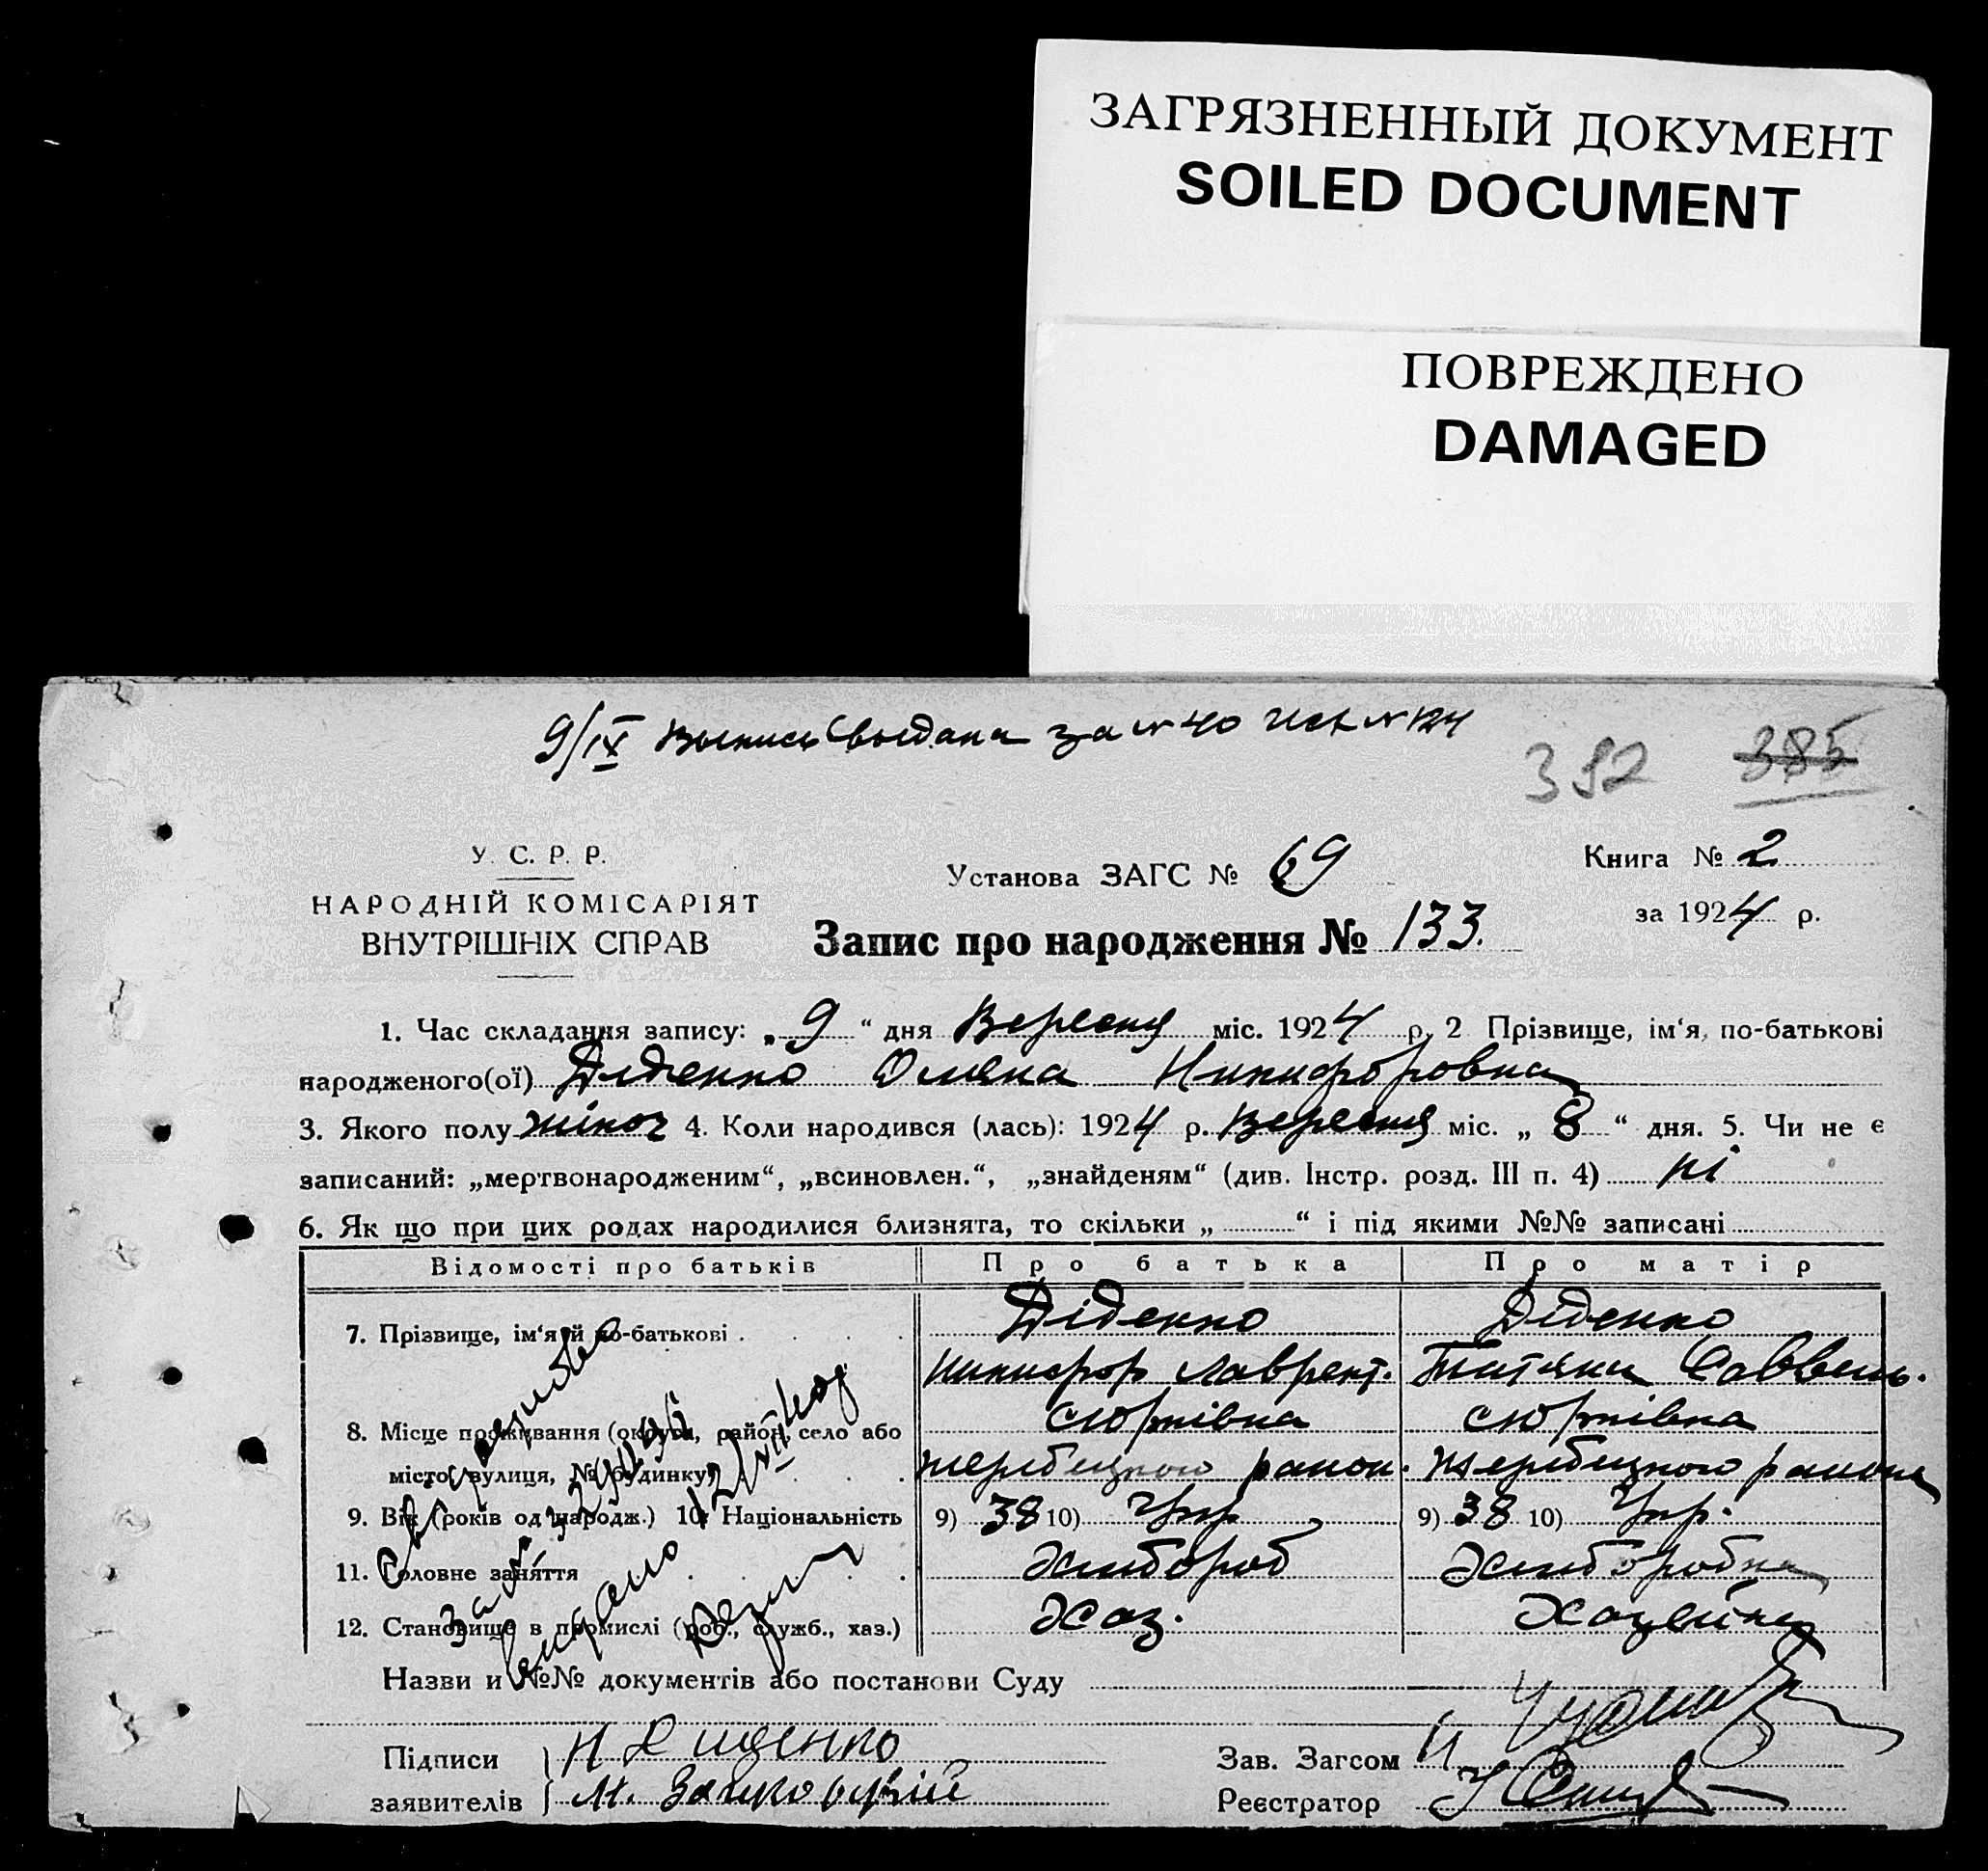 ЗАГРЯЗНЕННЫЙ ДОКУМЕНТ
SOILED DOCUMENT
ПОВРЕЖДЕНО
DAMAGED
9/IX Выпись выдана за № 40
392 385
У. С. Р. Р.
НАРОДНІЙ КОМІСАРІЯТ
ВНУТРІШНІХ СПРАВ
Установа ЗАГС № 69
Книга № 2
за 1924 р.
Запис про народження № 133.
1. Час складання запису: „ 9 “ дня Вересня міс. 1924 р. 2 Прізвище, ім‘я, по-батькові
народженого(ої) Діденко Олена Никифоровна
3. Якого полу жіноч 4. Коли народився (лась): 1924 р. Вересня міс. „ 8 “ дня. 5. Чи не є
записаний: „мертвонародженим“, „всиновлен.“, „знайденям“ (див. Інстр. розд. III п. 4) ні
6. Як що при цих родах народилися близнята, то скільки „ “ і під якими №№ записані
Відомості про батьків Про батька Про матір
7. Прізвище, ім‘я й по-батькові Діденко Діденко
Никифор Лаврент. Татяна
8. Місце проживання (округа, район, село або
місто, вулиця, № будинку)
9. Вік (років од народж.) 10. Національність 9) 38 10) Укр. 9) 38 10) Укр.
11. Головне заняття Хлібороб Хлібороб
12. Становище в промислі (роб., служб., хаз.) Хаз. Хазяйка
Назви и №№ документів або постанови Суду
Підписи Н Диденко Зав. Загсом
заявителів М. Реєстратор